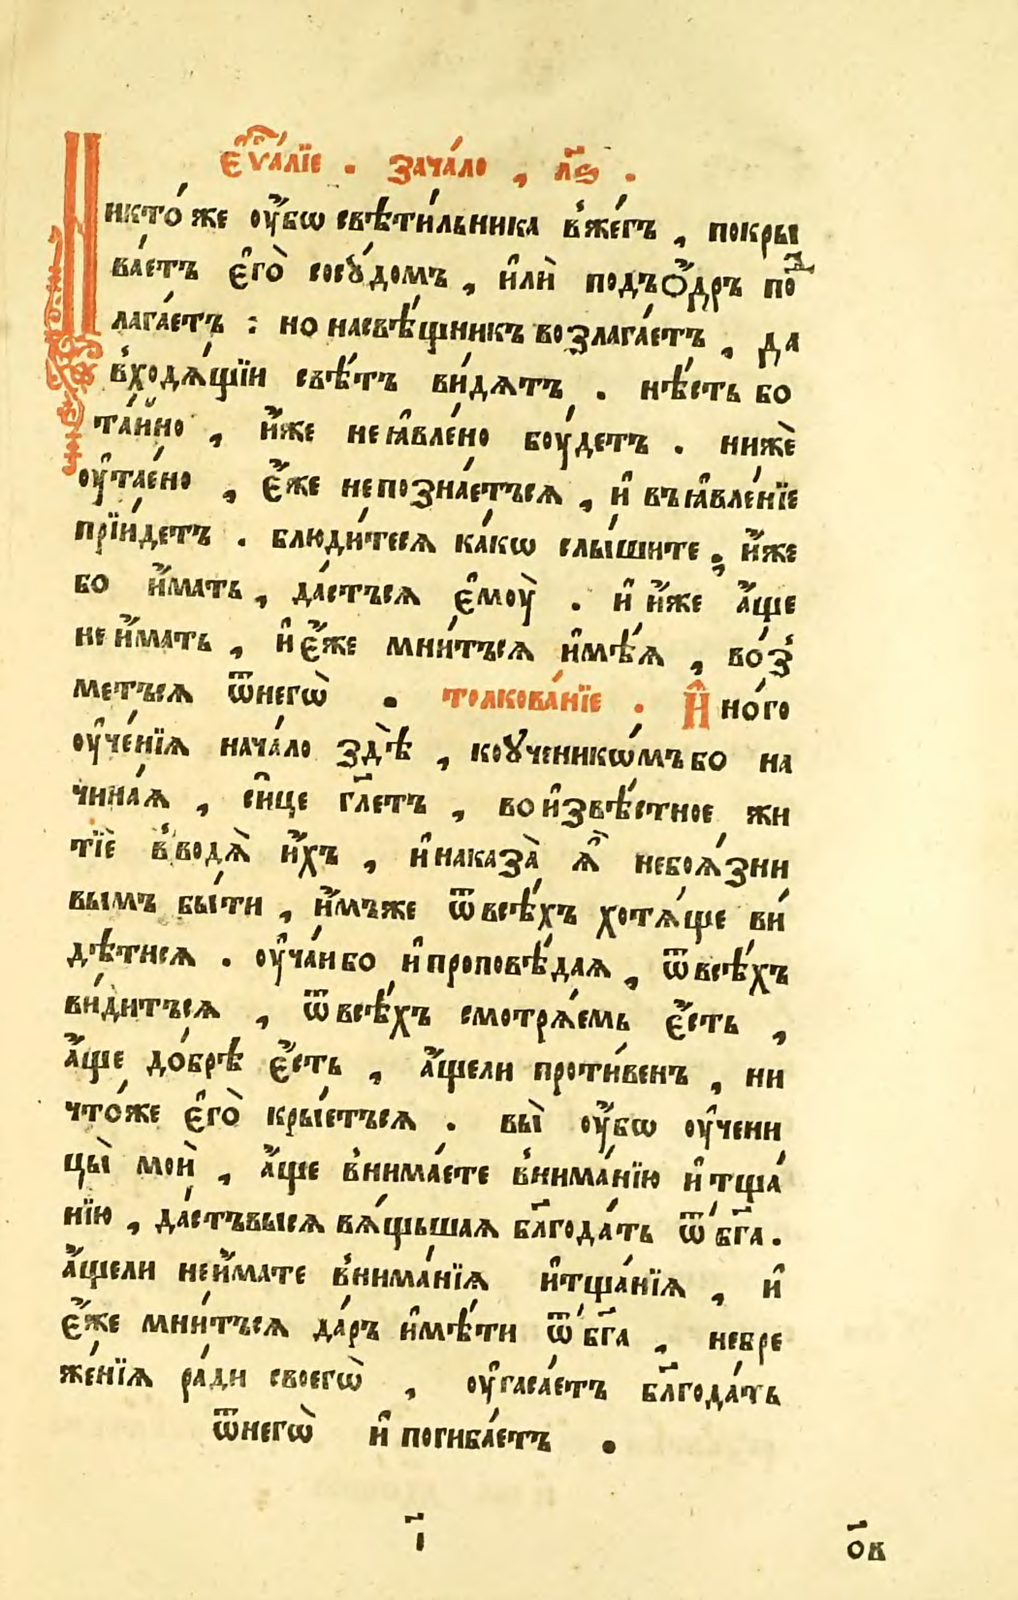 Є҆ѵⷢ҇а́лїе . зача́ло , л҃ѕ .
Никто́ же ᲂу҆̀бѡ свѣти́льника в̾же́гъ , покры
ва́етъ є҆го̀ сосꙋ́домъ , и҆лѝ подъѻ҆́дръ поⷣ
лага́етъ : но насвѣ́щникъ возлага́етъ , да
в̾ходѧ́щїи свѣ́тъ ви́дѧтъ . нѣ́сть бо
та́йно , и҆́же неꙗ҆вле́но бѹ́детъ . нижѐ
ᲂу҆тае́но , є҆́же непозна́етъсѧ , и҆ въꙗ҆вле́нїе
прїи́детъ . блюди́тесѧ ка́кѡ слы́шите , и҆́же
бо и҆́мать , да́стъсѧ є҆мѹ̀ . и҆ и҆́же а҆́ще
неи҆́мать , и҆ є҆́же мни́тъсѧ и҆мѣ́ѧ , во́з̾
метъсѧ ѿнегѡ̀ . толкова́нїе . И҆но́го
ᲂу҆че́нїѧ нача́ло здѣ̀ , коꙋченикѡ́мъ бо на
чина́ѧ , си҆́це гл҃етъ , во и҆звѣ́стное жи
тїѐ в̾водѧ̀ и҆́хъ , и҆ наказа̀ ѧ҆̀ небоѧ́зни
вымъ бы́ти , и҆́мъже ѿ всѣ́хъ хотѧ́ще ви́
дѣтисѧ . ᲂу҆ча́и бо и҆ проповѣ́даѧ , ѿ всѣ́хъ
ви́дитъсѧ , ѿ всѣ́хъ смотрѧ́емь є҆́сть ,
а҆́ще до́брѣ є҆́сть , а҆́щели проти́венъ , ни
что́же є҆го̀ кры́етъсѧ . вы̀ ᲂу҆̀бѡ ᲂу҆чени
цы̀ моѝ , а҆́ще в̾нима́ете в̾нима́нїю и҆ тща́
нїю , да́стъвысѧ вѧ́щьшаѧ бл҃года́ть ѿ бг҃а .
а҆́щели неи҆́мате в̾нима́нїѧ и҆тща́нїѧ , и҆
є҆́же мни́тъсѧ да́ръ и҆мѣ́ти ѿ бг҃а , небре
же́нїѧ ра́ди своегѡ̀ , ᲂу҆гаса́етъ бл҃года́ть
ѿнегѡ̀ и҆ погиба́етъ .
і҃ о҃в